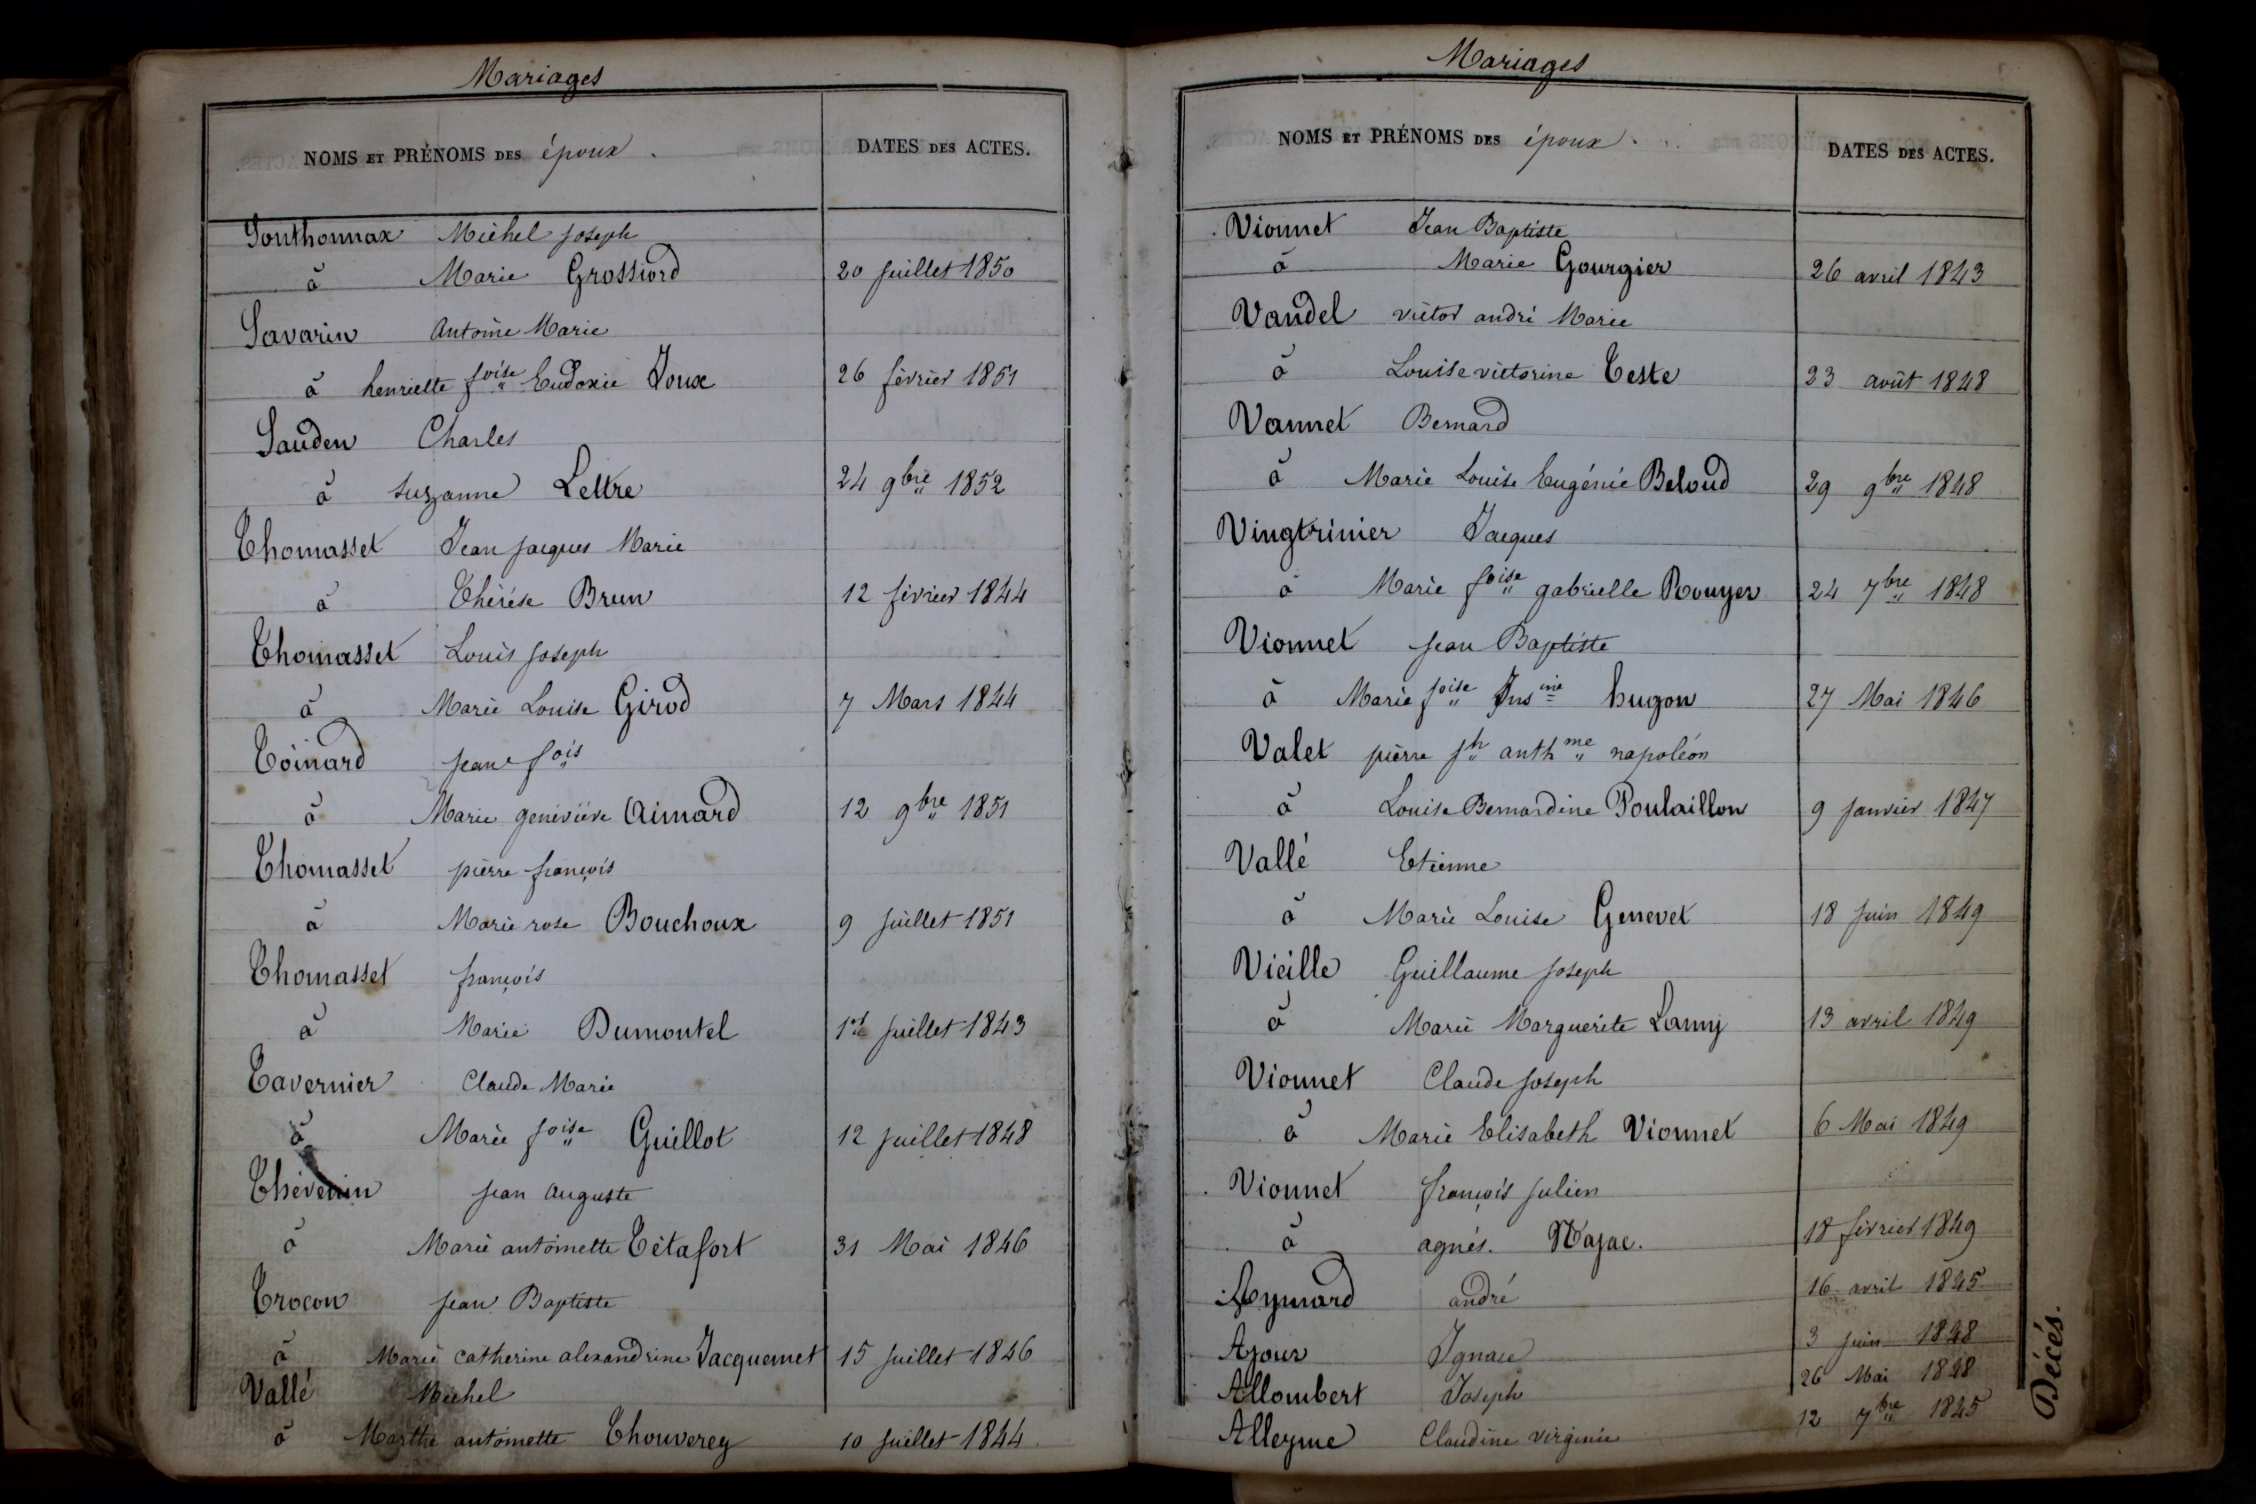 Mariages
NOMS ET PRÉNOMS DES époux.
DATES DES ACTES.
Jonthonnax Michel Joseph
à Marie Grossiord 20 Juillet 1850
Savarin Antoine Marie
à henriette foise Eudoxie Joux 26 février 1851
Sauden Charles
à Suzanne Lettre 24 9bre 1852
Thomasset Jean Jacques Marie
à Thérèse Brun 12 février 1844
Thomasset Louis Joseph
à Marie Louise Girod 7 Mars 1844
Toinard Jean fois
à Marie geneviève Aimard 12 9bre 1851
Thomasset pierre françois
à Marie rose Bouchoux 9 Juillet 1851
Thomasset françois
à Marie Dumontel 1er Juillet 1843
Tavernier Claude Marie
à Marie foise Guillot 12 Juillet 1848
Thévenin Jean Auguste
à Marie antoinette Tétafort 31 Mai 1846
Trocon Jean Baptiste
à Marie Catherine alexandrine Jacquemet 15 Juillet 1846
Vallé Michel
à Marthe antoinette Thouverey 10 Juillet 1844
Mariages
NOMS ET PRÉNOMS DES époux.
DATES DES ACTES.
Vionnet Jean Baptiste
à Marie Gourgier 26 avril 1843
Vandel victor andré Marie
à Louise victorine Teste 23 août 1848
Vannet Bernard
à Marie Louise Eugénie Beloud 29 9bre 1848
Vingtrinier Jacques
à Marie foise gabrielle Rouyer 24 7bre 1848
Vionnet Jean Baptiste
à Marie foise Jusine hugon 27 Mai 1846
Valet pierre jh anthme napoléon
à Louise Bernardine Poulaillon 9 Janvier 1847
Vallé Etienne
à Marie Louise Genevet 18 Juin 1849
Vieille Guillaume Joseph
à Marie Marguerite Lamy 13 avril 1849
Vionnet Claude Joseph
à Marie Elisabeth Vionnet 6 Mai 1849
Vionnet françois Julien
à agnés. Najac. 18 février 1849
Aymard andré 16 avril 1845
Ajour Ignace 3 Juin 1848
Allombert Joseph 26 Mai 1848
Alleyme Claudine virginie 12 7bre 1845
Décés.